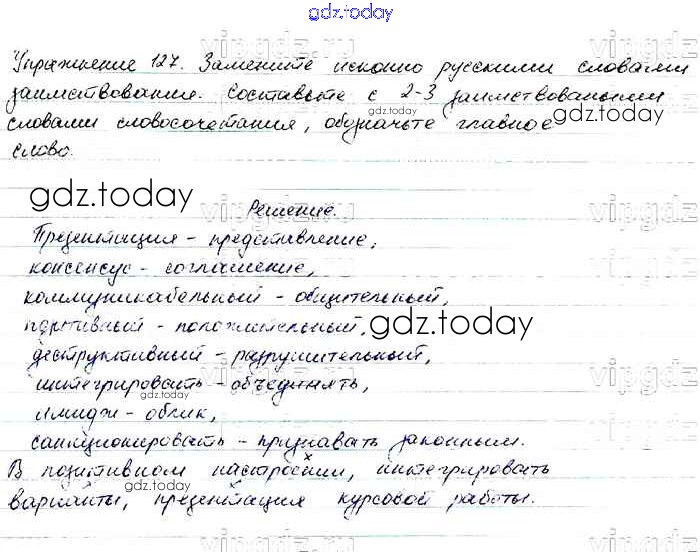 gdz.today
Упражнение 127. Замените исконно русскими словами
заимствования. Составьте с 2-3 заимствованными
словами словосочетания, обозначьте главное
слово.
gdz.today
vipgdz
Решение.
Презентация - представление,
консенсус - соглашение,
коммуникабельный - общительный,
позитивный - положительный,
gdz.today
деструктивный - разрушительный,
vipgdz
интегрировать - объединять,
имидж - облик,
санкционировать - признавать законным.
В позитивном настроении, интегрировать
варианты, презентация курсовой работы.
gdz.today
vipgdz